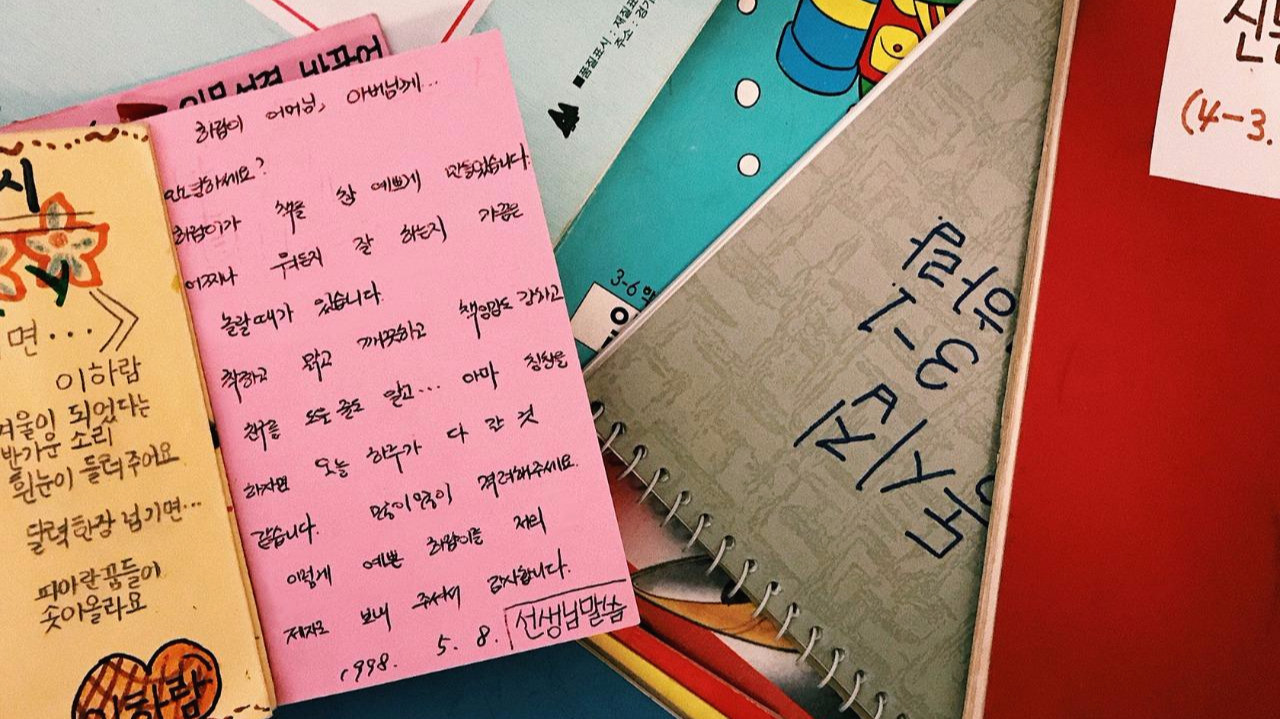 하람이 어머님, 아버님께...
안녕하세요?
하람이가 책을 참 예쁘게 만들었습니다.
어쩌나 뭐든지 잘 하는지 가끔은
놀랄때가 있습니다.
착하고 맑고 깨끗하고 책임감도 강하고
친구를 도울 줄도 알고... 아마 칭찬을
하자면 오늘 하루가 다 갈 것
같습니다. 많이많이 격려해주세요.
이렇게 예쁜 하람이를 저의
제자로 보내 주셔서 감사합니다.
1998. 5. 8.
선생님말씀
시
면...
이하람
겨울이 되었다는
반가운 소리
흰눈이 들려주어요
달력한장 넘기면...
파아란꿈들이
솟아올라요
이하람
바꾸어
■품질표시 : 재질표
주소 : 경기
3-6
3-1
(4-3.